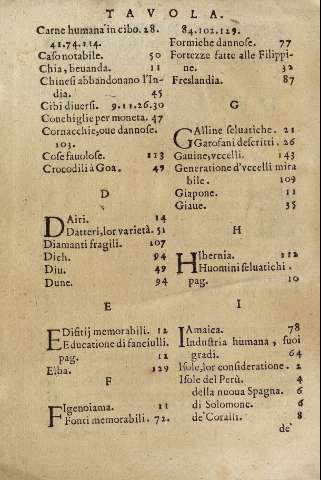 TAVOLA.
Carne humana in cibo. 28.
41. 74. 114.
Caso notabile. 50
Chia, beuanda. 11
Chinesi abbandonano l'In-
dia. 45
Cibi diuersi. 9. 11. 26. 30
Conchiglie per moneta. 47
Cornacchie, oue dannose.
103.
Cose fauolose. 113
Crocodili à Goa. 49
D
DAiri. 14
Datteri, lor varietà. 51
Diamanti fragili. 107
Dich. 94
Diu. 49
Dune. 94
E
EDifitij memorabili. 12
Educatione di fanciulli.
pag. 12
Elba. 129
F
FIgenoiama. 11
Fonti memorabili. 72.
84. 102. 129.
Formiche dannose. 77
Fortezze fatte alle Filippi-
ne. 32
Freslandia. 87
G
GAlline seluatiche. 21
Garofani descritti. 26
Gauine, vccelli. 143
Generatione d'vccelli mira
bile. 109
Giapone. 11
Giaue. 35
H
HIbernia. 112
Huomini seluatichi.
pag. 10
I
IAmaica. 78
Industria humana, suoi
gradi. 64
Isole, lor consideratione. 2
Isole del Perù. 4
della nuoua Spagna. 6
di Solomone. 6
de' Coralli. 8
de'